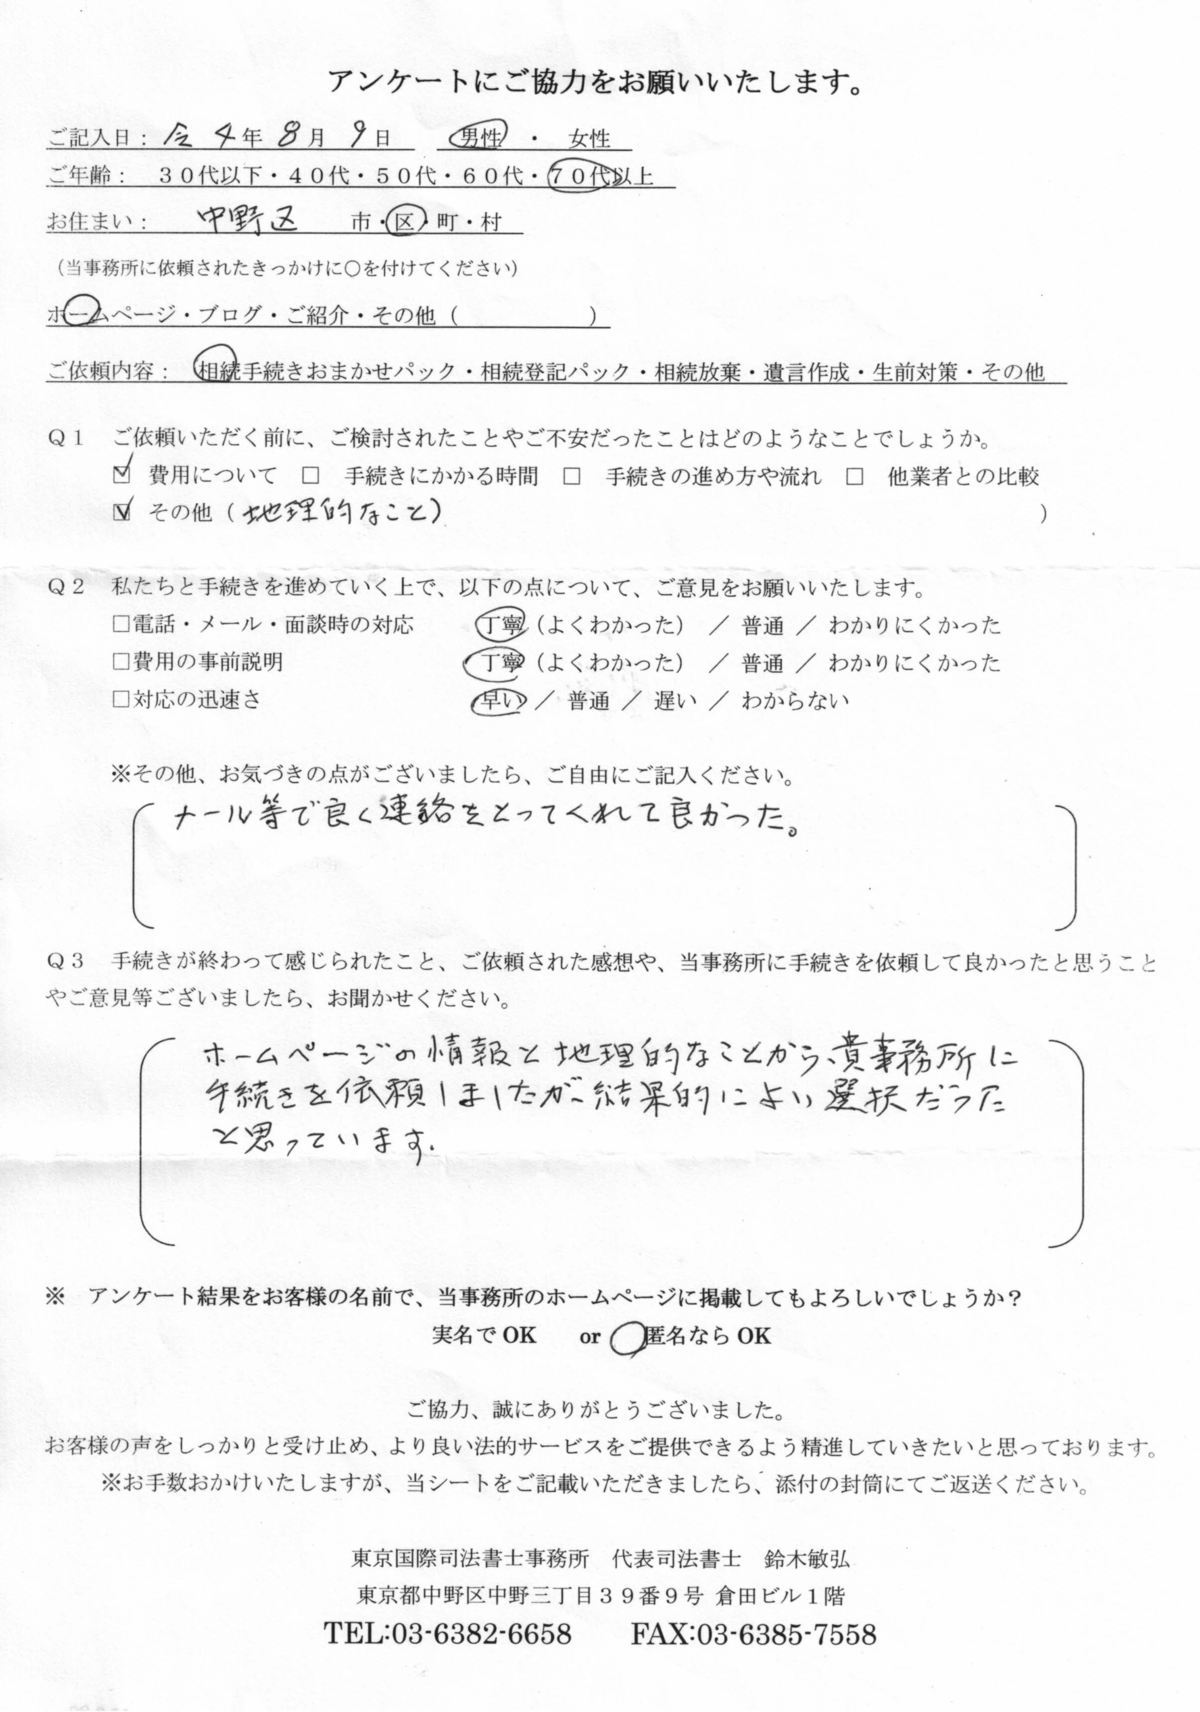 アンケートにご協力をお願いいたします。
ご記入日： 令 4 年 8 月 9 日　男性 ・ 女性
ご年齢：　３０代以下・４０代・５０代・６０代・７０代以上
お住まい：　中野区　市・区・町・村
（当事務所に依頼されたきっかけに○を付けてください）
ホームページ・ブログ・ご紹介・その他（　　　　　　）
ご依頼内容：　相続手続きおまかせパック・相続登記パック・相続放棄・遺言作成・生前対策・その他
Ｑ１　ご依頼いただく前に、ご検討されたことやご不安だったことはどのようなことでしょうか。
☑ 費用について　□ 手続きにかかる時間　□ 手続きの進め方や流れ　□ 他業者との比較
☑ その他（地理的なこと）　　　　　）
Ｑ２　私たちと手続きを進めていく上で、以下の点について、ご意見をお願いいたします。
□電話・メール・面談時の対応　　丁寧（よくわかった） ／ 普通 ／ わかりにくかった
□費用の事前説明　　丁寧（よくわかった） ／ 普通 ／ わかりにくかった
□対応の迅速さ　　早い ／ 普通 ／ 遅い ／ わからない
※その他、お気づきの点がございましたら、ご自由にご記入ください。
メール等で良く連絡をとってくれて良かった。
Ｑ３　手続きが終わって感じられたこと、ご依頼された感想や、当事務所に手続きを依頼して良かったと思うこと
やご意見等ございましたら、お聞かせください。
ホームページの情報と地理的なことから、貴事務所に
手続きを依頼しましたが、結果的によい選択だった
と思っています。
※　アンケート結果をお客様の名前で、当事務所のホームページに掲載してもよろしいでしょうか？
実名で OK　　or　○匿名なら OK
ご協力、誠にありがとうございました。
お客様の声をしっかりと受け止め、より良い法的サービスをご提供できるよう精進していきたいと思っております。
※お手数おかけいたしますが、当シートをご記載いただきましたら、添付の封筒にてご返送ください。
東京国際司法書士事務所　代表司法書士　鈴木敏弘
東京都中野区中野三丁目３９番９号 倉田ビル１階
TEL:03-6382-6658　　FAX:03-6385-7558